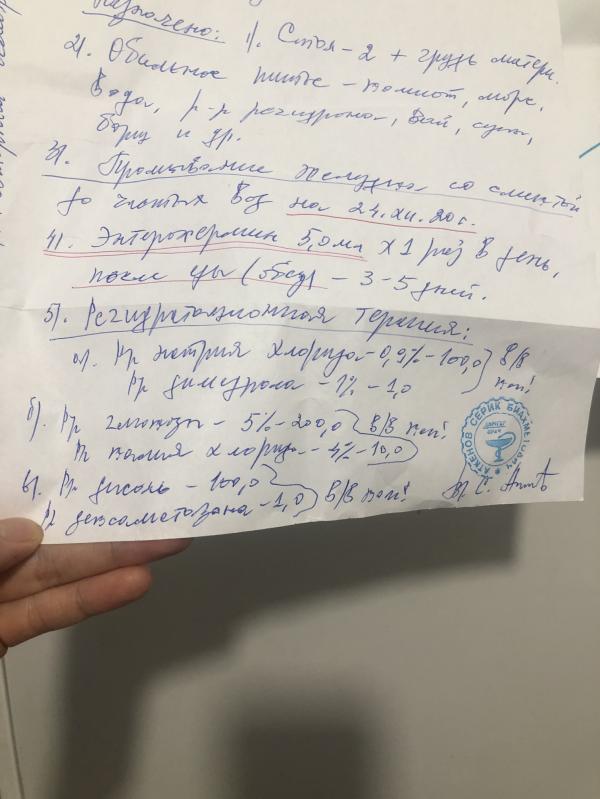 Назначено: 1). Стол - 2 + грудь матери.
2). Обильное питье - компот, морс,
вода, р-р регидрона, чай, супы,
борщ и др.
3). Промывание желудка со смектой
до чистых вод на 24.XII.20г.
4). Энтерожермин 5,0мл х 1 раз в день,
после еды (обед) - 3-5 дней.
5). Регидратационная терапия:
а). Рр натрия хлорида - 0,9% - 100,0 в/в
Рр димедрола - 1% - 1,0 кап!
б). Рр глюкозы - 5% - 200,0 в/в кап!
Рр калия хлорида - 4% - 10,0
в). Рр дисоль - 100,0 в/в кап!
Рр дексаметазона - 1,0
АТКЕНОВ СЕРИК
ДӘРІГЕР
ВРАЧ